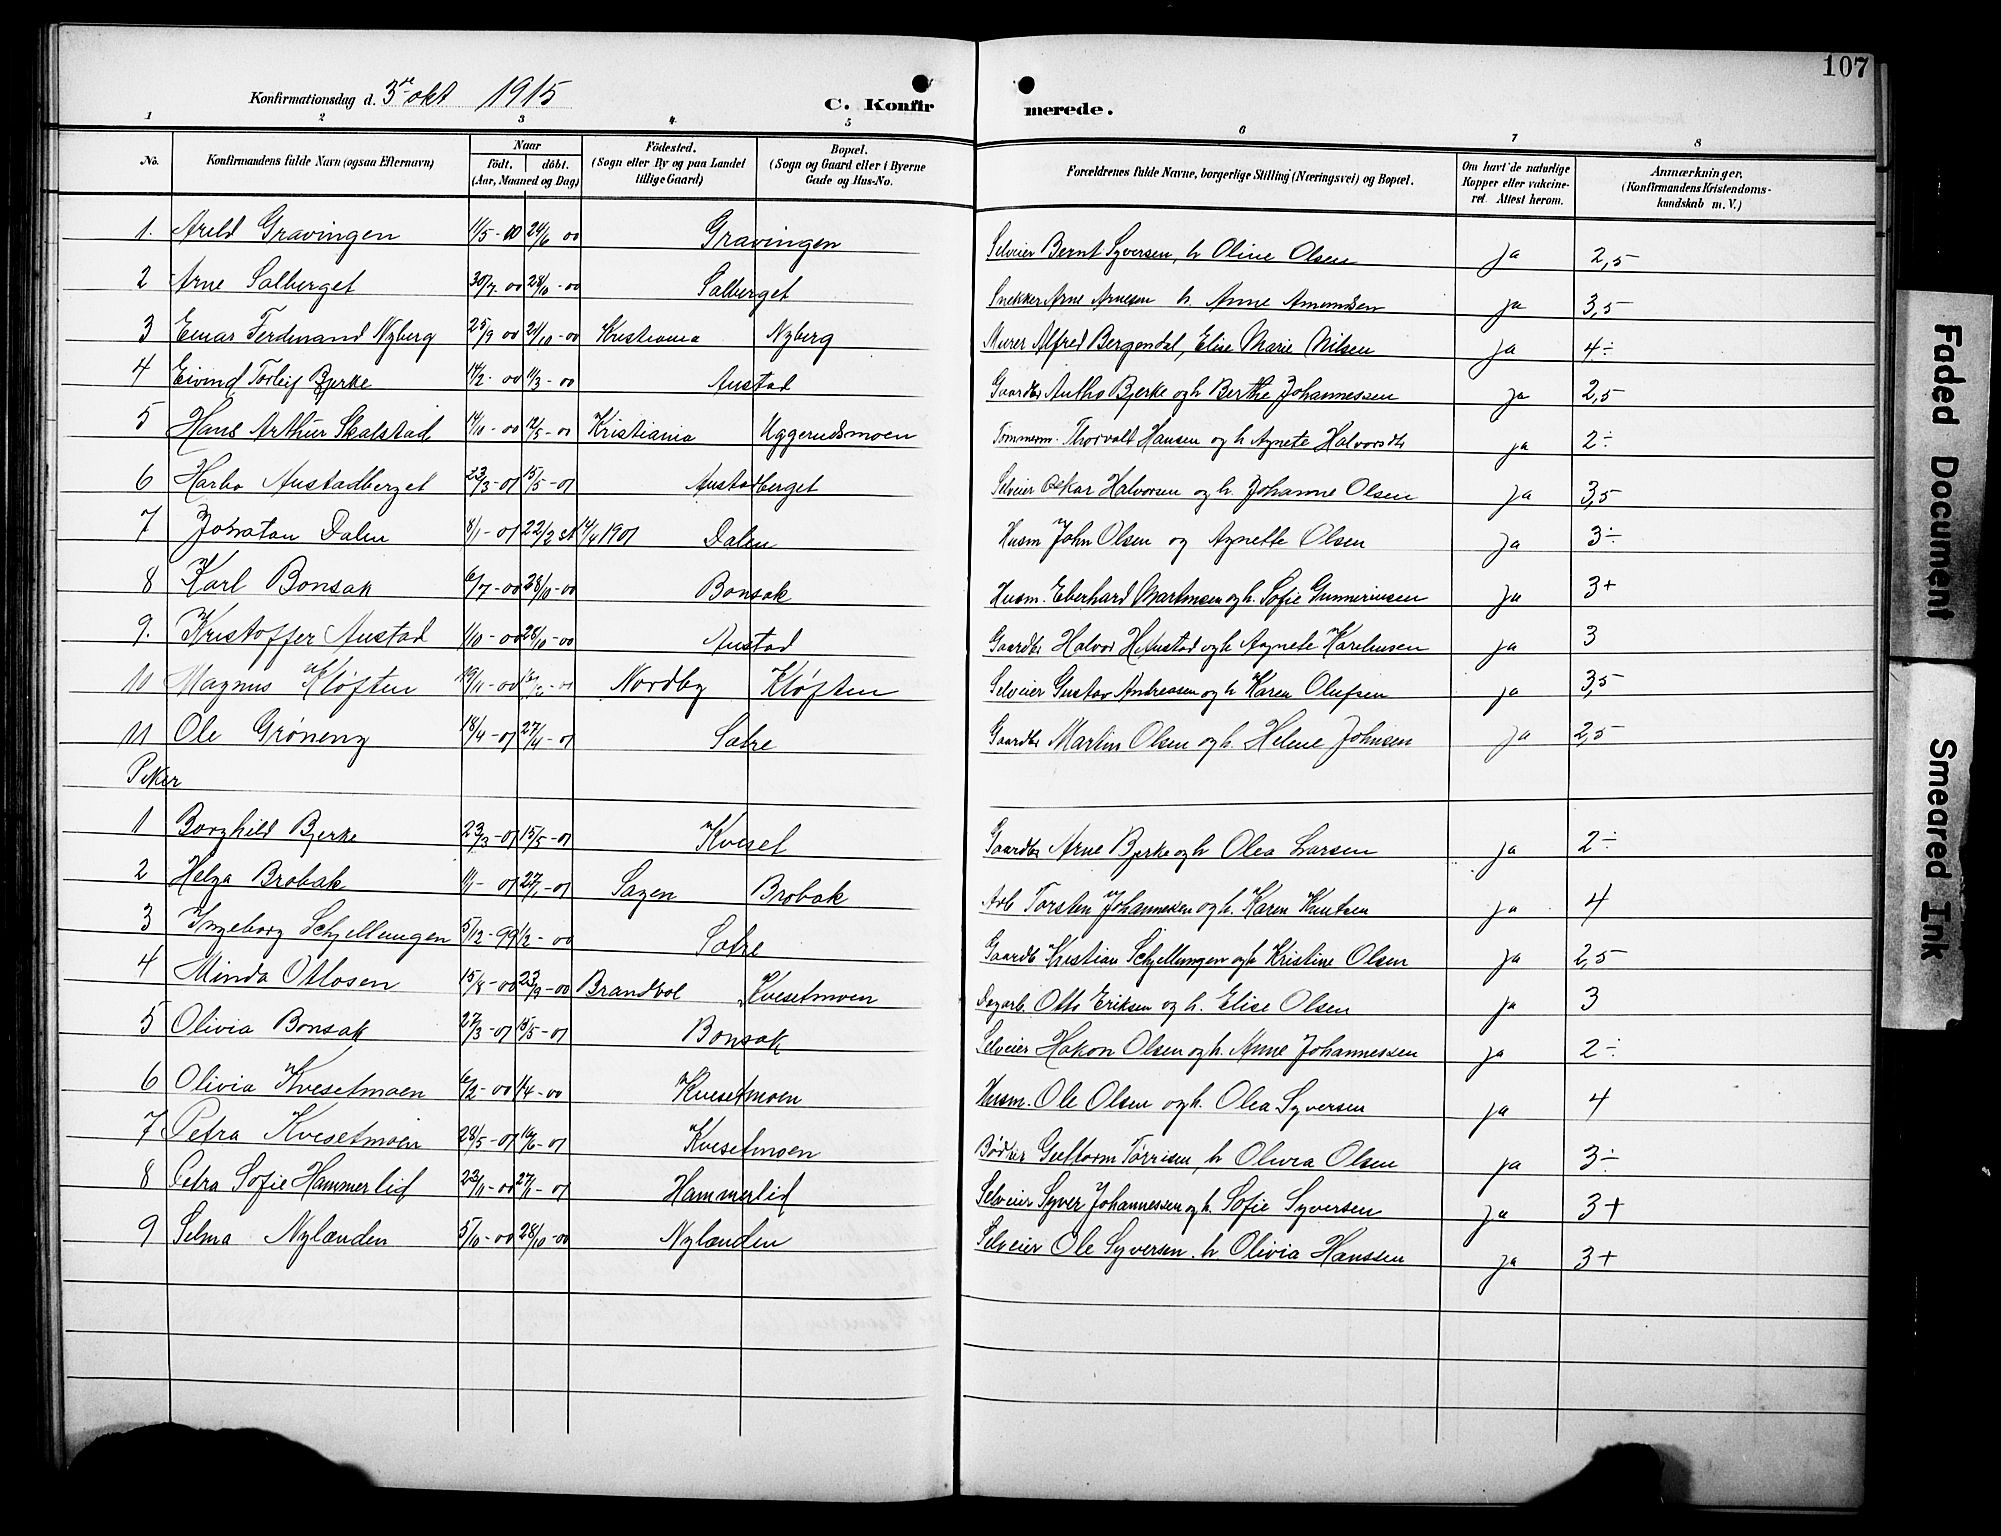 107
Konfirmationsdag d. 3die okt 1915
C. Konfirmerede.
1 2 3 4 5 6 7 8
No. Konfirmandens fulde Navn (ogsaa Efternavn) Naar født. døbt. (Aar, Maaned og Dag) Fødested. (Sogn eller By og paa Landet tillige Gaard) Bopæl. (Sogn og Gaard eller i Byerne Gade og Hus-No. Forældrenes fulde Navne, borgerlige Stilling (Næringsvei) og Bopæl. Om havt de naturlige Kopper eller vakcineret. Attest herom. Anmærkninger. (Konfirmandens Kristendomskundskab m. V.)
1. Arild Gravingen 11/5-00 24/6 00 Gravingen Selveier Bernt Syversen, h Oline Olsen ja 2,5
2 Arne Salberget 30/7-00 28/10-00 Salberget Snekker Arne Arnesen h. Anne Amundsen ja 3,5
3 Einar Ferdinand Nyberg 25/9 00 21/10-00 Kristiania Nyberg Murer Alfred Bergendal, Elise Marie Nilsen ja 4÷
4 Eivind Torleif Bjerke 14/2-00 11/3-00 Austad Gaardbr Antho Bjerke og h Berthe Johannessen ja 2,5
5 Hans Arthur Skalstad 14/10-00 12/5-01 Kristiania Uggerudsmoen Tømmerm. Thorvalt Hansen og h Agnete Halvorsdtr ja 2÷
6 Harbo Austadberget 23/3-01 15/5-01 Austadberget Selveier Oskar Halvorsen og h. Johanne Olsen ja 3,5
7 Jonatan Dalen 8/1-01 22/2 st 14/4 1901 Dalen Husm John Olsen og Agnette Olsen ja 3÷
8 Karl Bonsak 6/7-00 28/10-00 Bonsak Husm. Eberhard Martinsen og h. Sofie Gunneriusen ja 3+
9. Kristoffer Austad 1/10-00 28/10-00 Austad Gaardbr Halvor H Austad og h Agnete Karelinsen ja 3
10 Magnus Kløften 19/11-00 Nordby Kløften Selveier Gustav Andreasen og h Karen Olufsen ja 3,5
11 Ole Grøneng 18/4-01 27/4-01 Sætre Gaardbr Martin Olsen og h. Helene Johnsen ja 2,5
Piker
1 Borghild Bjerke 23/3-01 15/5-01 Kveset Gaardbr Arne Bjerke og h Olea Larsen ja 2÷
2 Helga Brobak 1/1-01 27/1-01 Sagen Brobak Arb Torsten Johannesen og h. Karen Knutsen ja 4
3 Ingeborg Schjellungen 5/12-99 1/2-00 Sætre Gaardb Kristian Schjellungen og h Kristine Olsen ja 2,5
4 Minda Ottosen 15/8-00 23/9-00 Brandvol Kvesetmoen Dagarb. Otto Eriksen og h. Elise Olsen ja 3
5 Olivia Bonsak 27/3-01 15/5-01 Bonsak Selveier Hakon Olsen og h. Anne Johannessen ja 2÷
6 Olivia Kvesetmoen 6/2-00 1/4-00 Kvesetmoen Husm. Ole Olsen og h. Olea Syversen ja 4
7 Petra Kvesetmoen 28/5-01 16/6-01 Kvesetmoen Bødker Guttorm Tørrisen, h Olivia Olsen ja 3÷
8 Petra Sofie Hammerlid 23/11-00 27/1-01 Hammerlid Selveier Syver Johannessen og h. Sofie Syversen ja 3+
9 Selma Nylænden 5/10-00 28/10-00 Nylænden Selveier Ole Syversen. h. Olivia Hanssen ja 3+
Faded Document
Smeared Ink